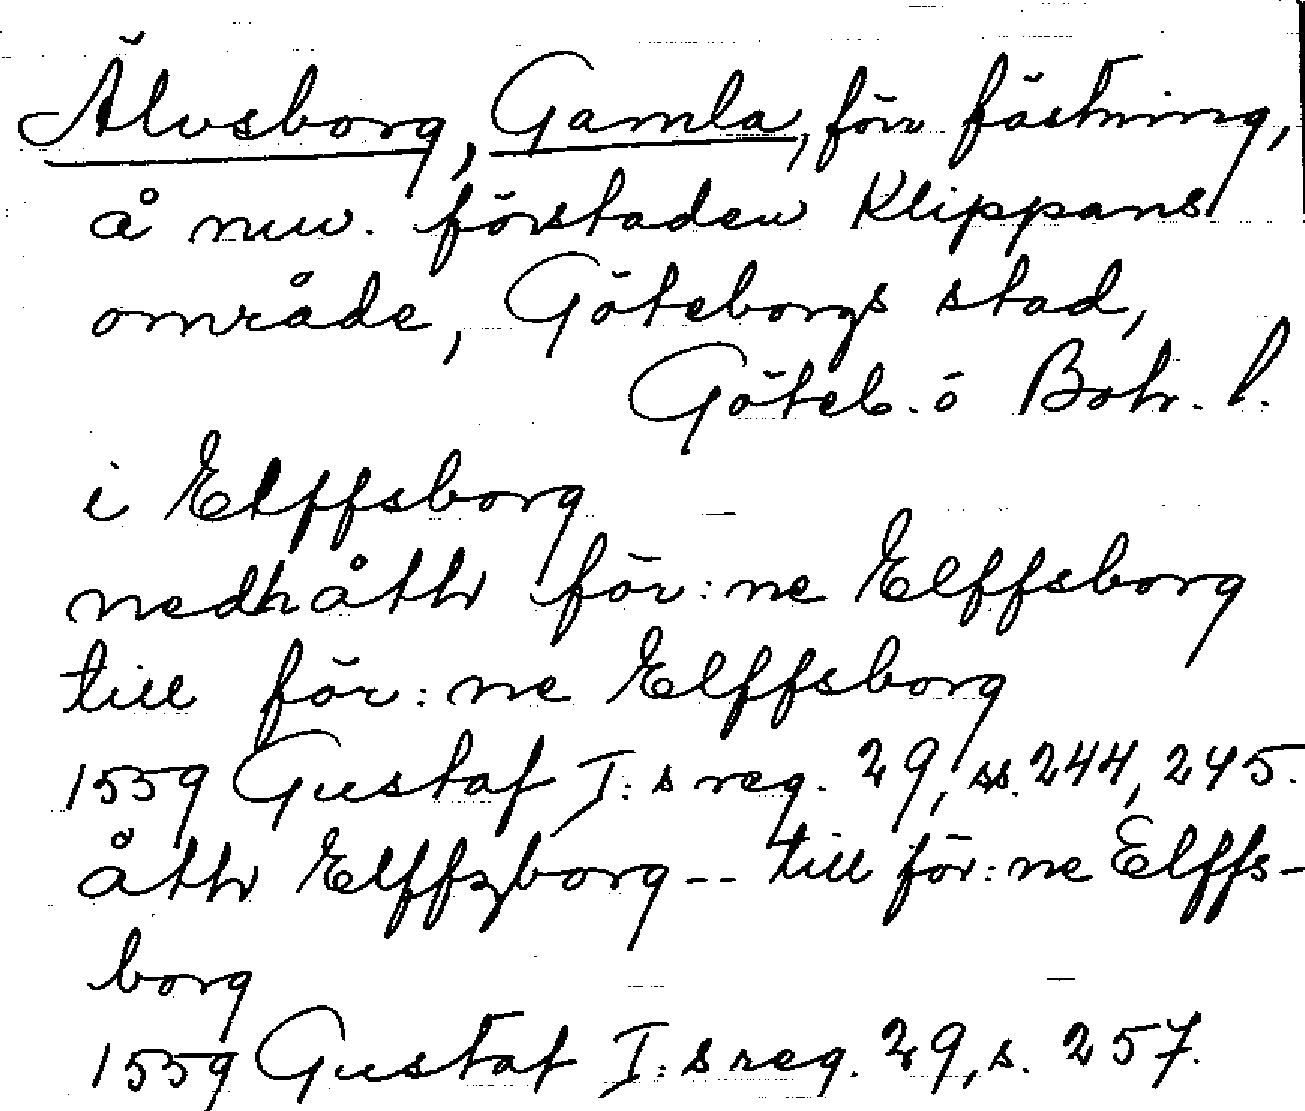 Älvsborg, Gamla, förr fästning,
å nuv. förstaden Klippans
område, Göteborgs stad,
Göteb. o Boh. l.
i Elffsborg
nedhåth för:ne Elffsborg
till för:ne Elffsborg
1559 Gustaf I:s reg. 29, ss. 244, 245.
åth Elffzborg -- till för:ne Elffs-
borg
1559 Gustaf I:s reg. 29, s. 257.